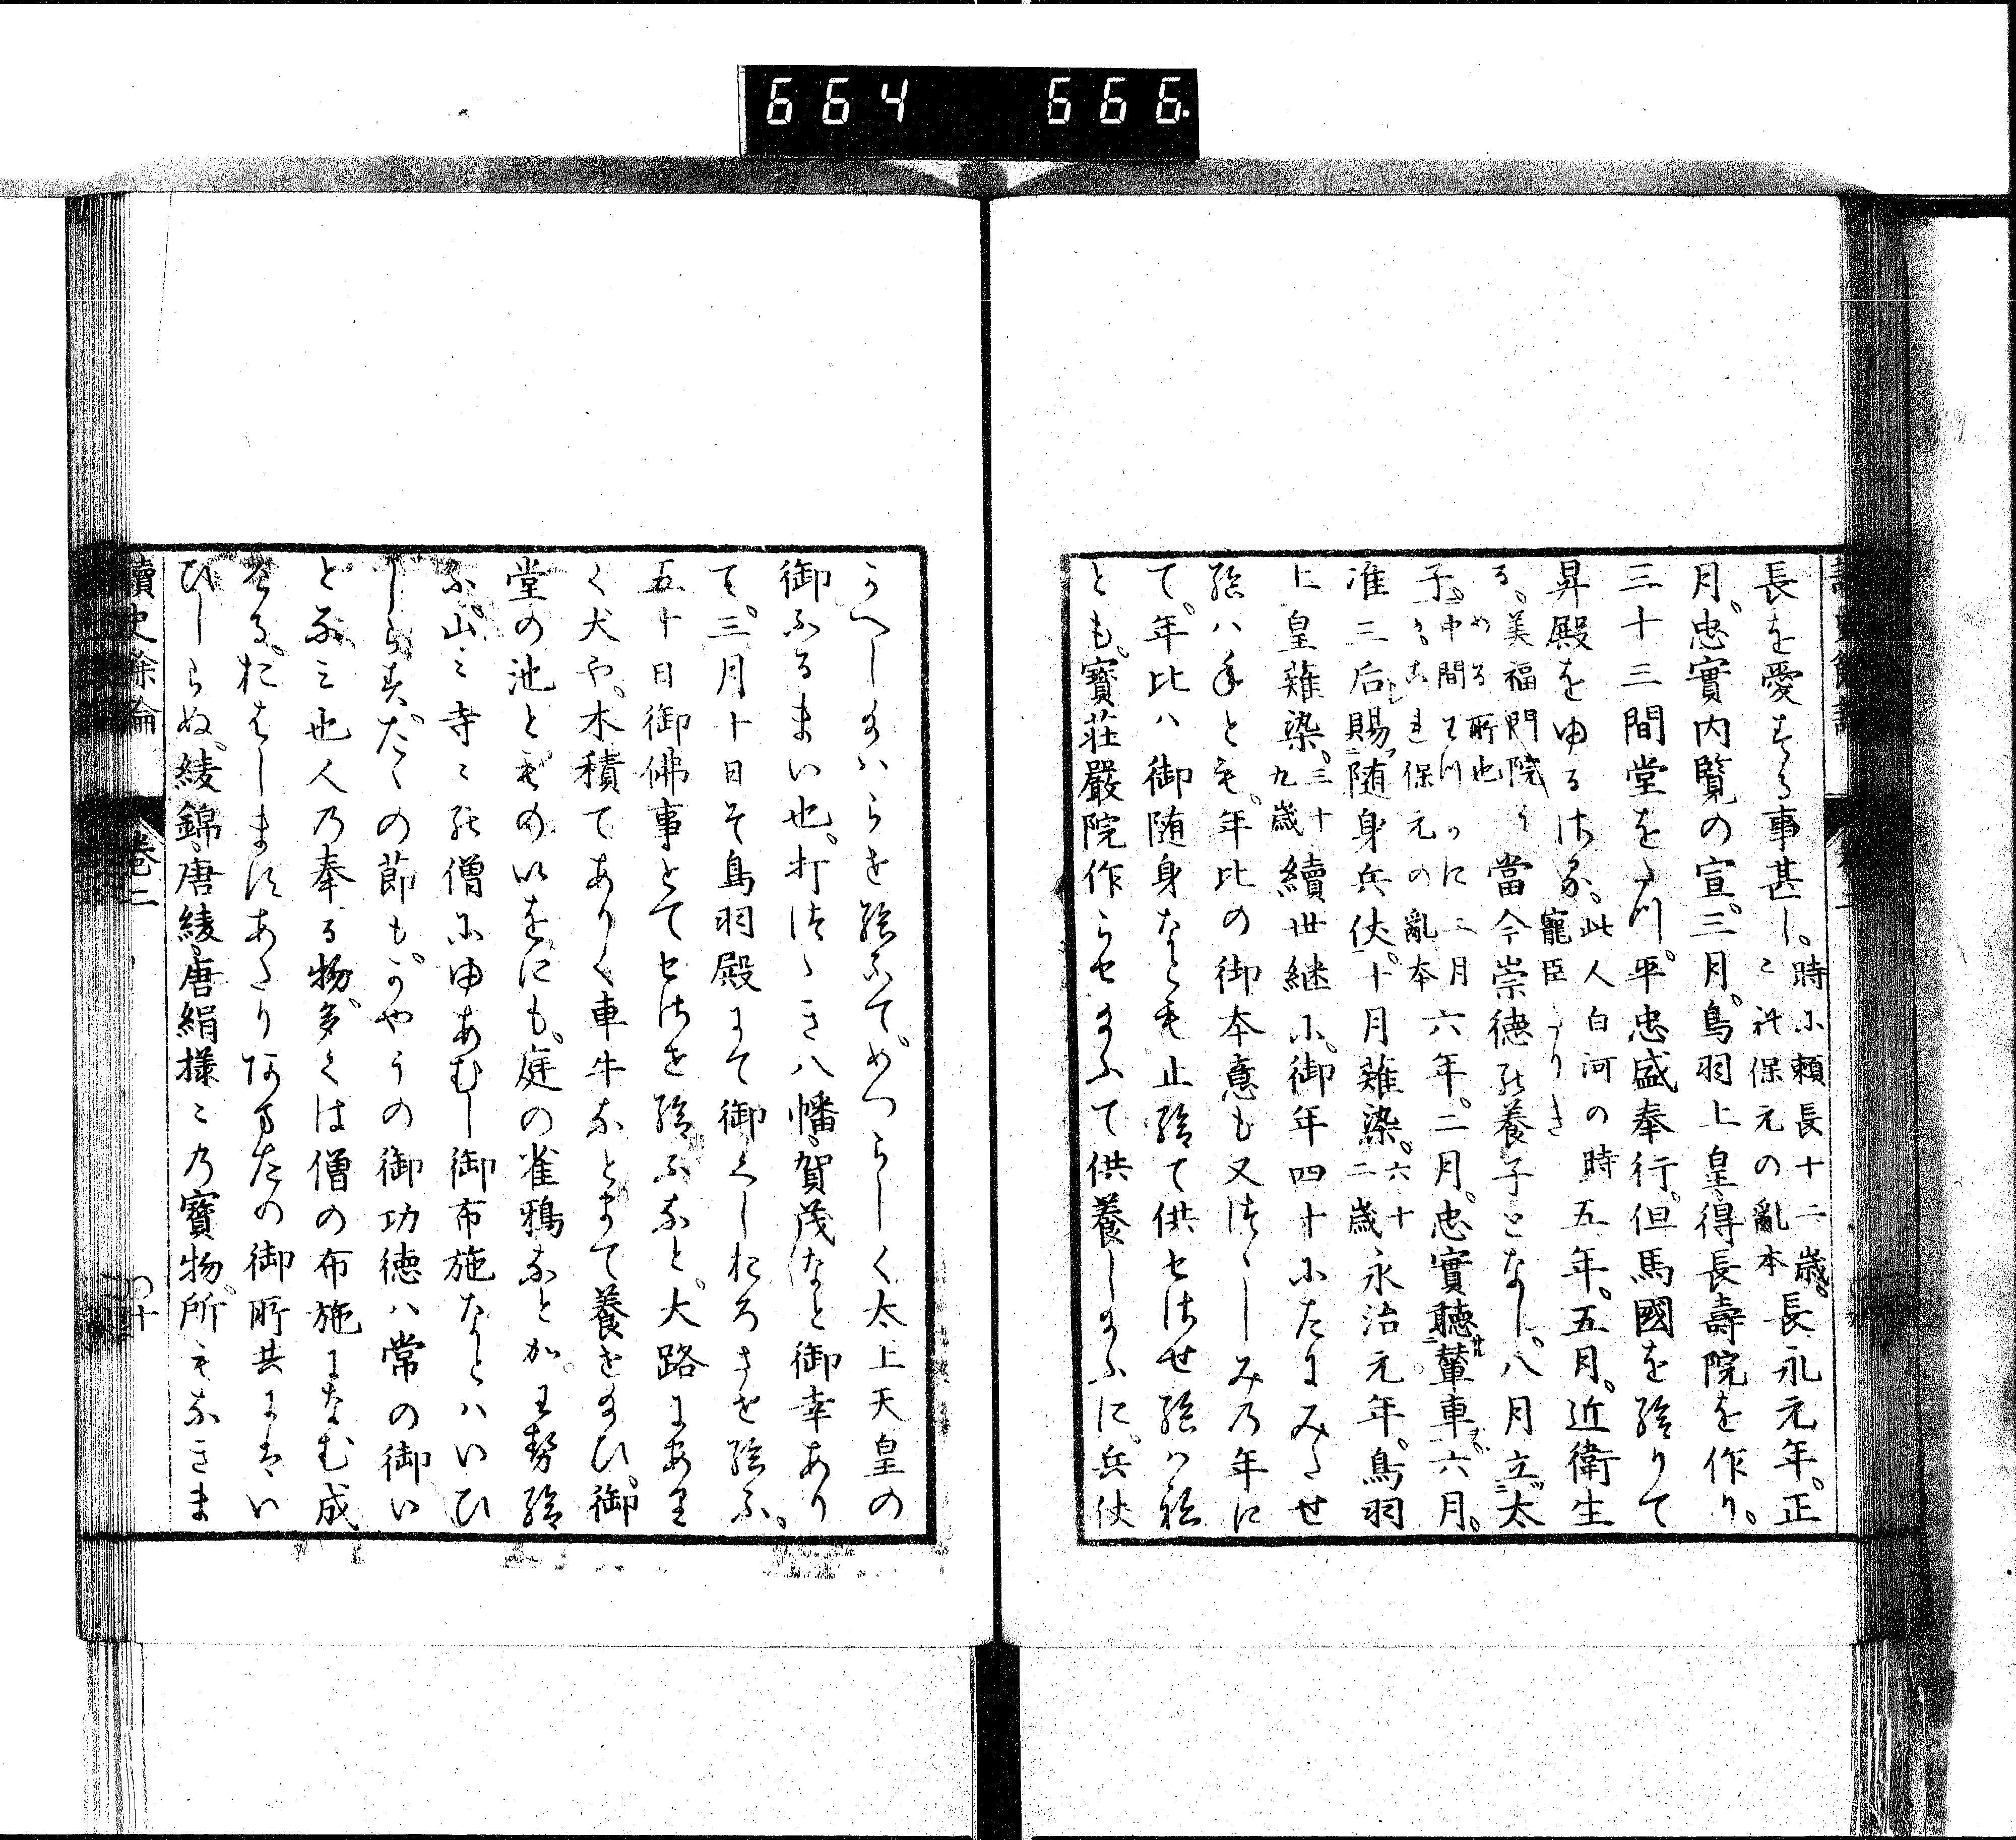 664 666
長を愛する事甚し。時に頼長十二歳。これ保元の亂本長承元年。正
月。忠實内覧の宣。三月。鳥羽上皇得長壽院を作り。
三十三間堂をたつ。平忠盛奉行。但馬國を給りて
昇殿をゆるさる。此人白河の時寵臣たりき五年。五月。近衛生
る。美福門院 當今崇徳の養子となし。八月立太
子。中間 二月 保元の亂本 六年。二月。忠實聴輦車。六月。
准三后賜随身兵仗。十月薙染。六十二歳永治元年。鳥羽
上皇薙染。三十九歳續世継に。御年四十にたにみたせ
給ハねとも。年比の御本意も又つゝしみの年に
て。年比ハ御随身なとも止給て供せさせ給ハね
とも。寳荘嚴院作らせ給ふて供養し給ふに。兵仗
かへし給ハらせ給ふて。めつらしく太上天皇の
御ふるまい也。打つゝき八幡賀茂なと御幸あり
て。三月十日そ鳥羽殿にて御くしおろさせ給ふ。
五十日御佛事とてせさせ給ふなと。大路にあり
く犬や。木積てありく車牛なとまて養せ給ひ。御
堂の池ともの いをにも。庭の雀鴉なとか。王勢給
ふ。山々寺々の僧にゆあむし御布施なとハいひ
しらす。たゝの節も。かやうの御功徳ハ常の御い
となミ也人の奉る物。多くは僧の布施になむ成
ける。おはしますあたり 御所共にはい
ひしらぬ。綾錦。唐綾。唐絹様々の寳物。所もなきま
讀史餘論 巻二 四十